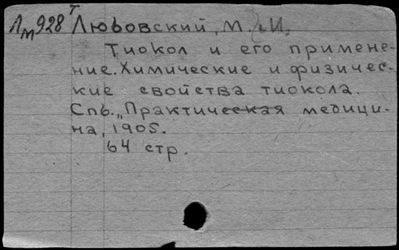 Лм928 Т Любовский, М. И.
Тиокол и его примене-
ние. Химические и физичес-
кие свойства тиокола.
Спб. „Практическая медици-
на, 1905.
64 стр.